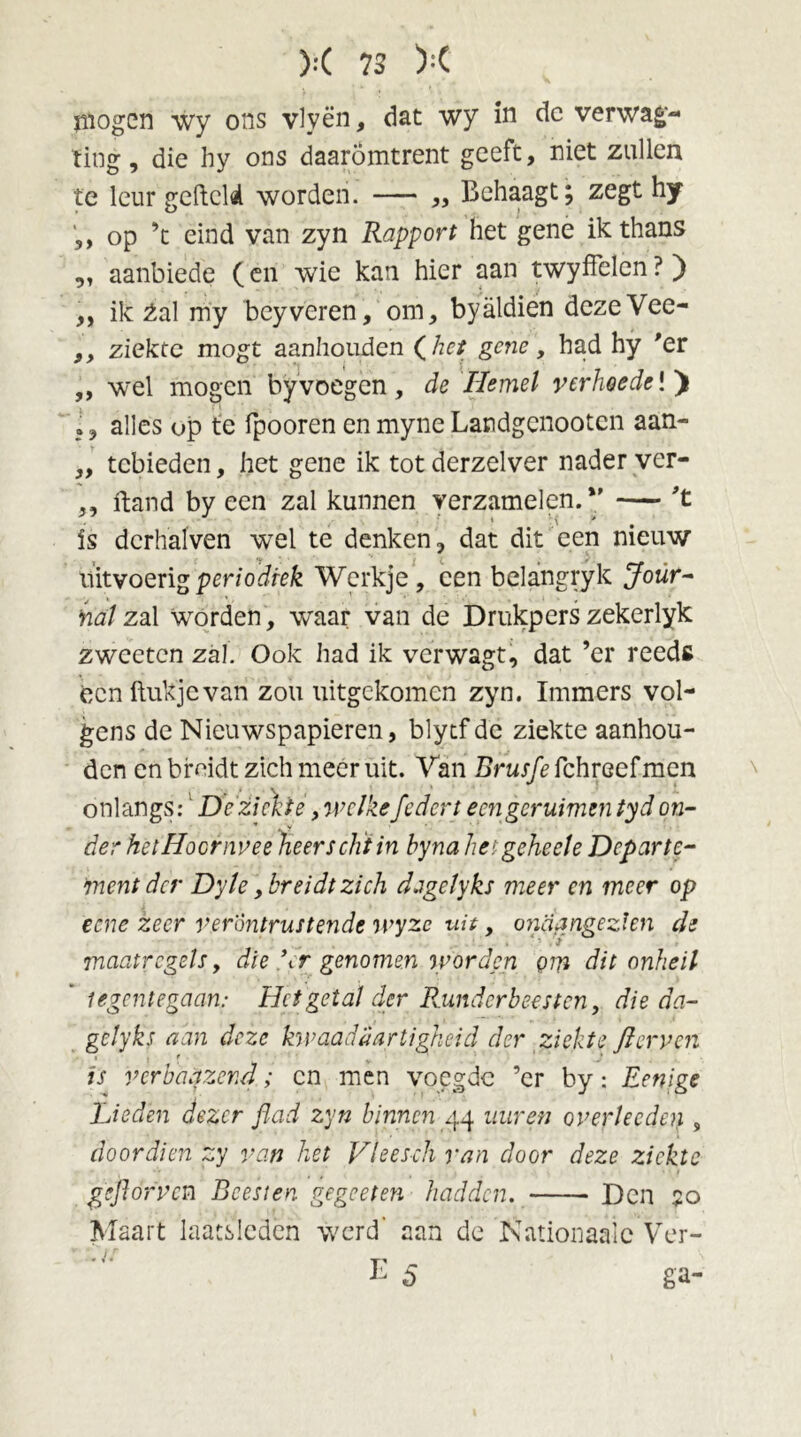 ):( 73 ):(
mogen wy ons vlyën, dat wy in de verwag-
ting, die hy ons daarömtrent geeft, niet zullen
te leur gesteld worden. —— „ Behaagt; zegt hy
„ op 't eind van zyn Rapport het gene ik thans
„ aanbiede (en wie kan hier aan twyffelen?)
„ ik zal my beyveren, om, byäldien deze Vee-
„ ziekte mogt aanhouden (het gene, had hy 'er
„ wel mogen byvoegen, de Hemel verhoede!)
„ alles op te spooren en myne Landgenooten aan-
„ tebieden, het gene ik tot derzelver nader ver-
„ stand by een zal kunnen verzamelen." —— 't
is derhalven wel te denken, dat dit een nieuw
uitvoerig periodiek Werkje, een belangryk Jour-
nal zal worden, waar van de Drukpers zekerlyk
zweeten zal. Ook had ik verwagt, dat 'er reeds
een stukje van zou uitgekomen zyn. Immers vol-
gens de Nieuwspapieren, blytf de ziekte aanhou-
den en breidt zich meer uit. Van Brusse schreef men
onlangs: De ziekte, welke sedert een geruimen tyd on-
der het Hoornvee heerscht in byna het geheele Departe-
ment der Dyle, breidt zich dagelyks meer en meer op
eene zeer veröntrustende wyze uit, onäangezien de
maatregels, die 'er genomen worden om dit onheil
tegentegaan: Het getal der Runderbeesten, die da-
gelyks aan deze kwaadäartigheid der ziekte sterven
is verbaazend; en men voegde 'er by: Eenige
Lieden dezer stad zyn binnen 44 uuren overleeden,
doordien zy van het Vleesch van door deze ziekte
gestorven Beesten gegeeten hadden. —— Den 20
Maart laatsleden werd aan de Nationaale Ver-
E 5 ga-